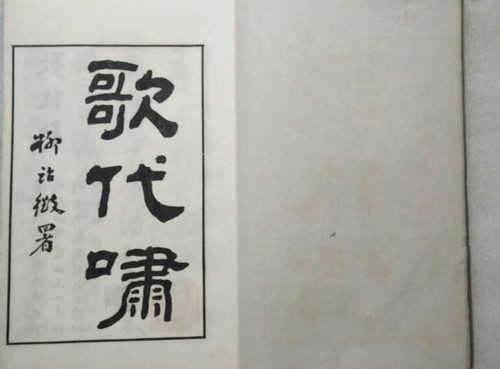 歌代嘯
柳詒徵署